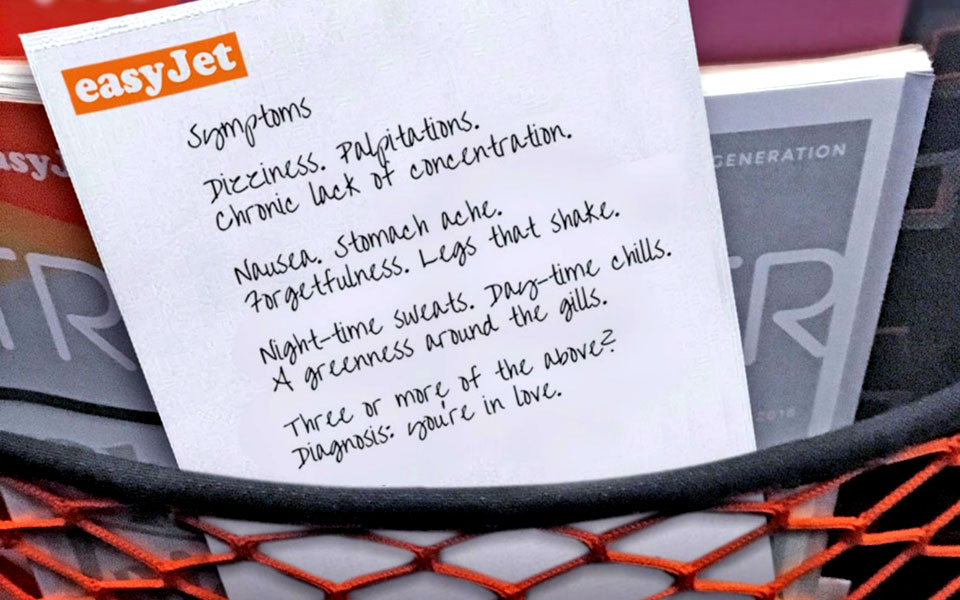 easyJet
Symptoms
Dizziness. Palpitations.
Chronic lack of concentration.
Nausea. Stomach ache.
Forgetfulness. Legs that shake.
Night-time sweats. Day-time chills.
A greenness around the gills.
Three or more of the above?
Diagnosis: you're in love.
GENERATION
TR
2016